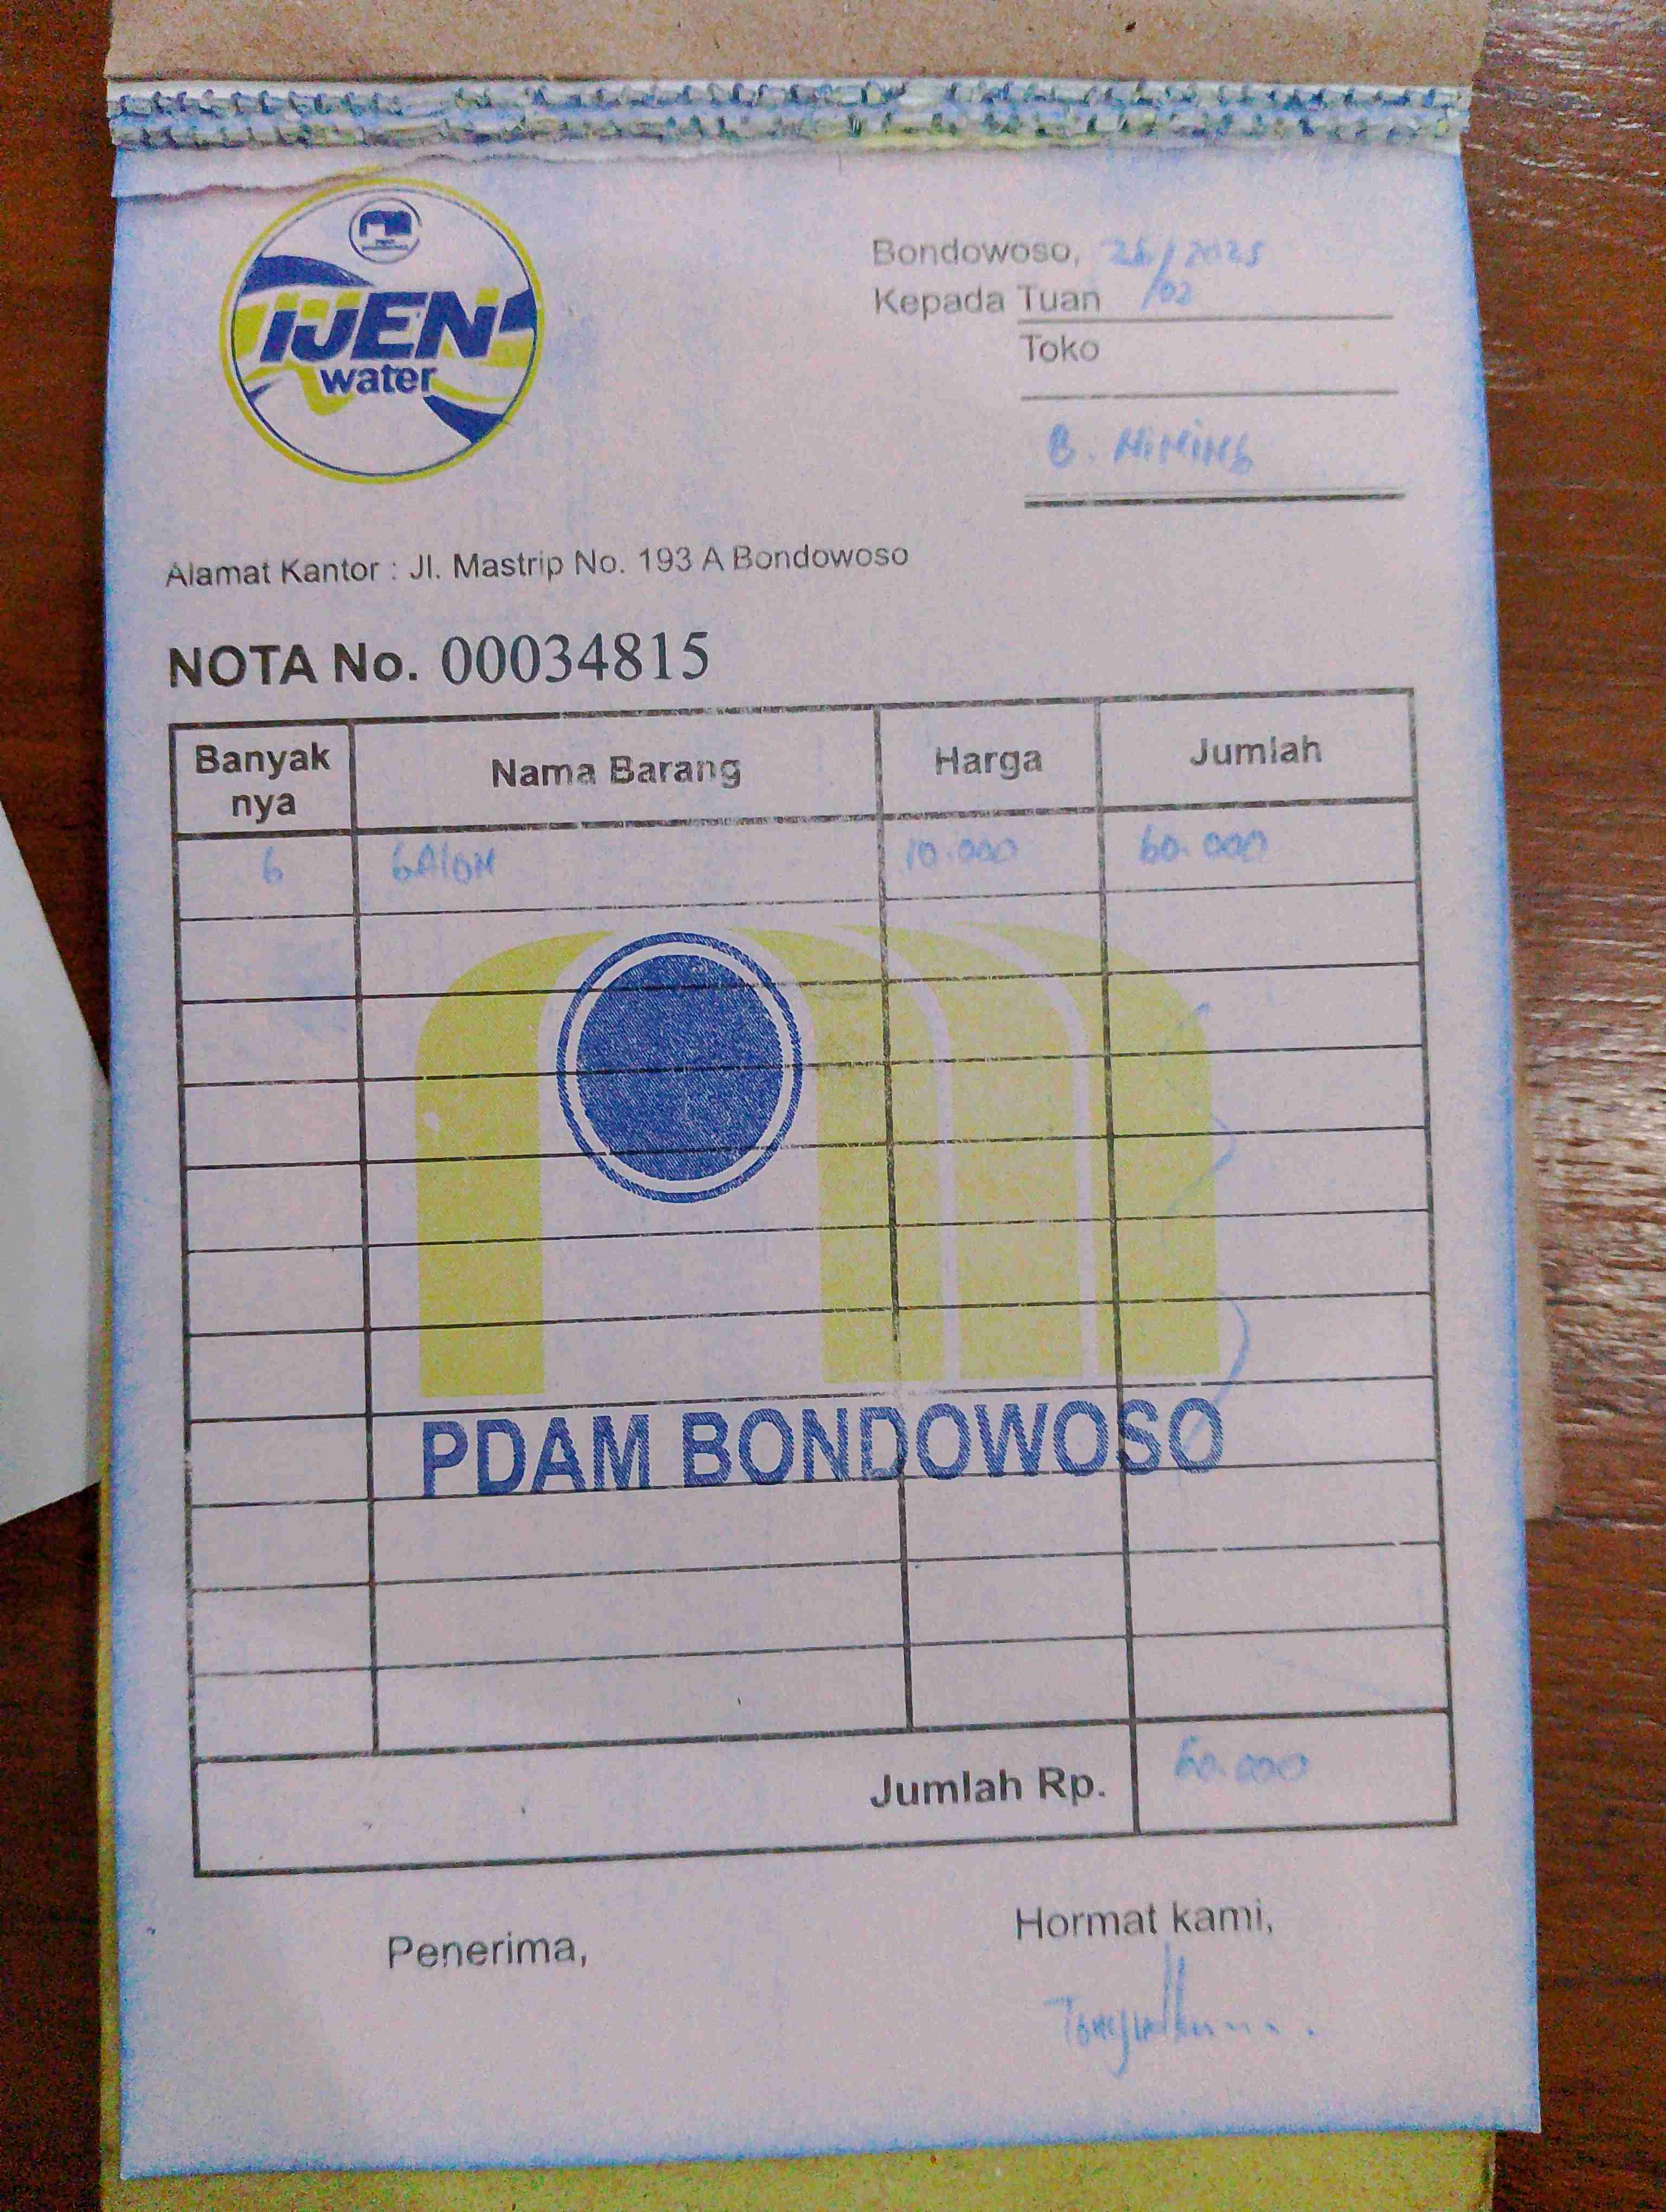 IJEN
water
Bondowoso, 26/02/2025
Kepada Tuan
Toko
B. NiNiNG
Alamat Kantor : Jl. Mastrip No. 193 A Bondowoso
NOTA No. 00034815
Banyak nya Nama Barang Harga Jumlah
6 GAlON 10.000 60.000
PDAM BONDOWOSO
Jumlah Rp. 60.000
Penerima,
Hormat kami,